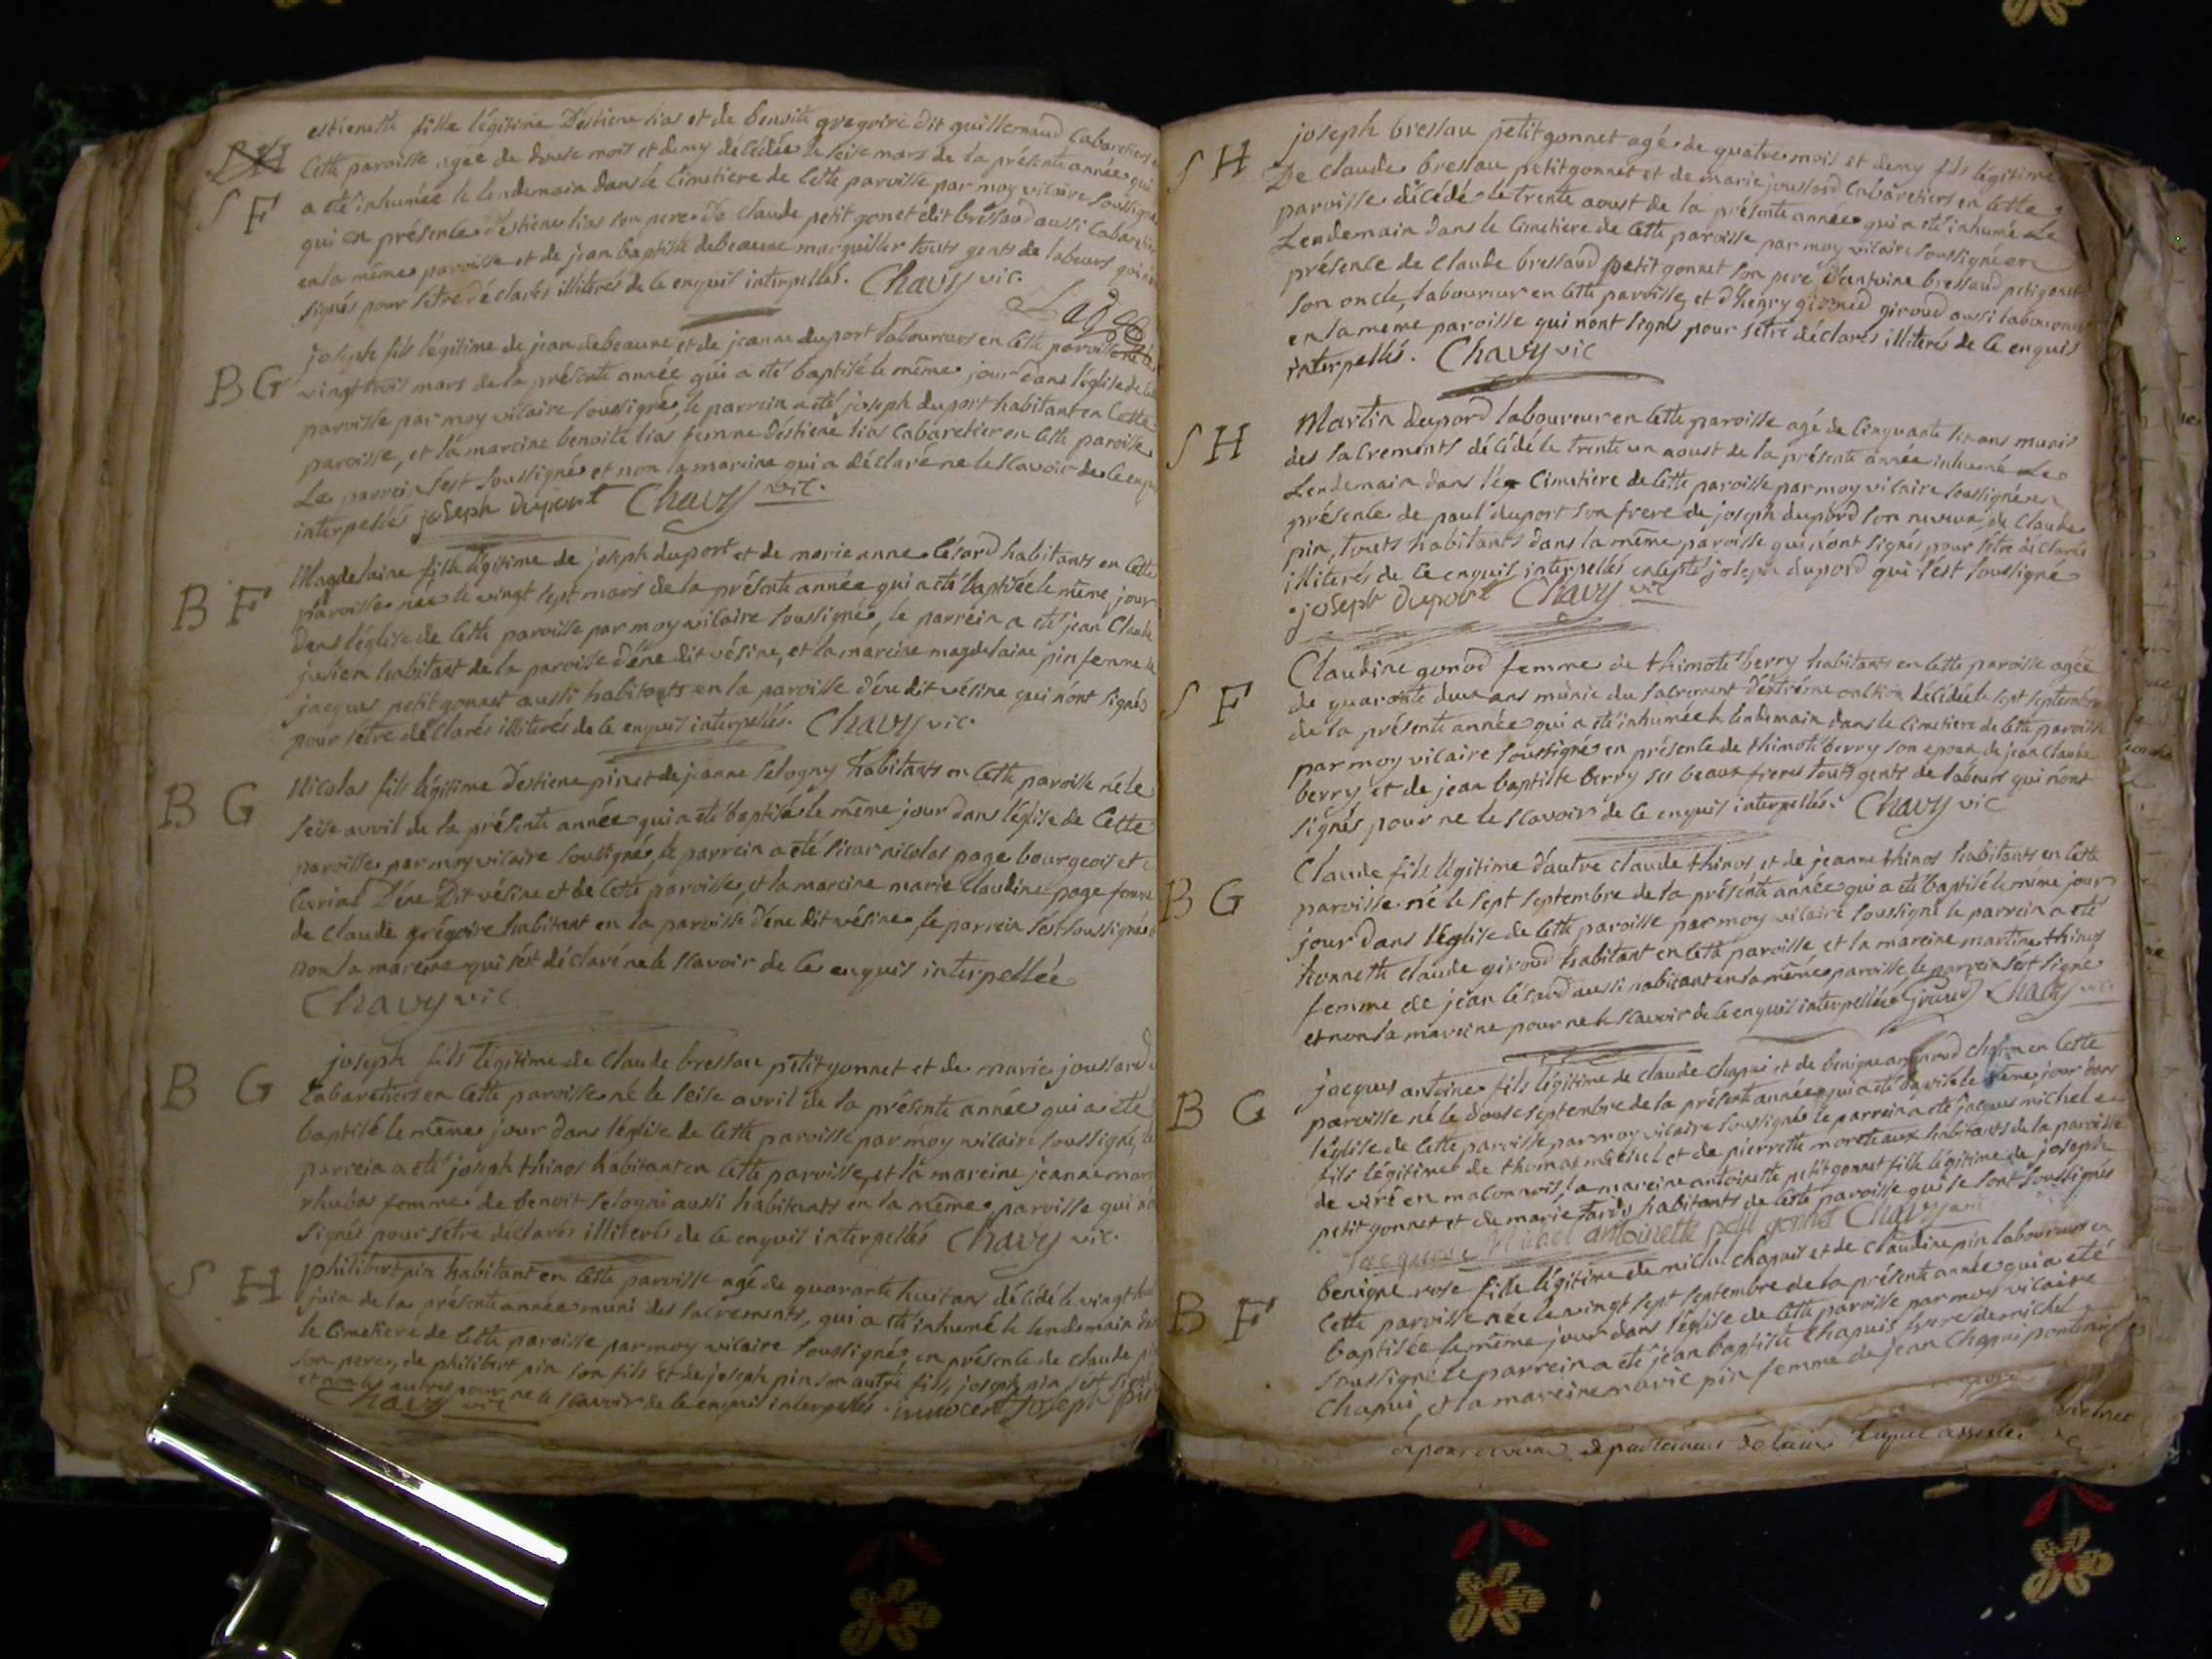 estiennette fille légitime d'estiene lias et de benoite gregoire dit guillemaud cabaretiers
S F
cette paroisse agée de douse mois et demy décédée le seise mars de la présente année qui
a été inhumée le lendemain dans le cimetiere de cette paroisse par moy vicaire soussigné
qui en présence d'estiene lias son pere de claude petit gonet dit bressaud aussi cabaretier
en la même paroisse et de jean baptiste debeaune marguiller touts gents de labeurs qui
signés pour s'etre déclarés illiterés de ce enquis interpellés. Chavy vic.
B G
joseph fils légitime de jean debeaune et de jeanne duport laboureurs en cette paroisse né le
vingt trois mars de la présente année qui a été baptisé le même jour dans l'église de
paroisse par moy vicaire soussigné, le parrein a été joseph duport habitant en cette
paroisse, et la mareine benoite lias femme d'estiene lias cabaretier en cette paroisse
Le parrein s'est soussigné et non la mareine qui a déclaré ne le scavoir de ce enquis
interpellés joseph duport Chavy vic.
B F
Magdelaine fille légitime de joseph duport et de marie anne lésard habitants en cette
paroisse née le vingt sept mars de la présente année qui a été baptisée le même jour
dans l'église de cette paroisse par moy vicaire soussigné, le parrein a été jean claude
julien habitant de la paroisse d'éne dit vésine, et la mareine magdelaine pin femme de
jacques petit gonnet aussi habitants en la paroisse d'éne dit vésine qui n'ont signés
pour s'etre déclarés illiterés de ce enquis interpellés. Chavy vic.
B G
Nicolas fils légitime d'estiene pin et de jeanne selogny habitants en cette paroisse né le
seise avril de la présente année qui a été baptisé le même jour dans l'église de cette
paroisse par moy vicaire soussigné, le parrein a été sieur nicolas page bourgeois et
curial d'éne dit vésine et de cette paroisse, et la mareine marie claudine page femme
de claude grégoire habitant en la paroisse d'éne dit vésine, le parrein s'est soussigné et
non la mareine qui s'est déclaré ne le scavoir de ce enquis interpellée
Chavy vic
B G
joseph fils légitime de claude bressau petit gonnet et de marie joussard
cabaretiers en cette paroisse né le seise avril de la présente année qui a été
baptisé le même jour dans l'église de cette paroisse par moy vicaire soussigné, le
parrein a été joseph thinos habitant en cette paroisse, et la mareine jeanne marie
rhubas femme de benoit selogni aussi habitants en la même paroisse qui n'ont
signés pour s'etre déclarés illiterés de ce enquis interpellés Chavy vic.
S H
philibert pin habitant en cette paroisse agé de quarante huit ans décédé le vingt
juin de la présente année muni des sacrements, qui a été inhumé le lendemain
le cimetiere de cette paroisse par moy vicaire soussigné, en présence de claude
son pere, de philibert pin son fils et de joseph pin son autre fils, joseph pin s'est
et non les autres pour ne le scavoir de ce enquis interpellés. innocent joseph pin
Chavy vic
S H
joseph bressau petit gonnet agé de quatre mois et demy fils légitime
De claude bressau petit gonnet et de marie joussard cabaretiers en cette
paroisse décédé le trente aoust de la présente année qui a été inhumé Le
Lendemain dans le cimetiere de cette paroisse par moy vicaire soussigné en
présence de claude bressaud petit gonnet son pere d'antoine bressaud petit gonet
son oncle, laboureur en cette paroisse, et d'henry giroud aussi laboureur
en la meme paroisse qui n'ont signés pour s'etre déclarés illiterés de ce enquis
interpellés. Chavy vic
S H
Martin dupord laboureur en cette paroisse agé de cinquante six ans munis
des sacrements décédé le trente un aoust de la présente année inhumé Le
Lendemain dans le cimetiere de cette paroisse par moy vicaire soussigné en
présence de paul duport son frere de joseph dupord son neveux, de claude
pin, touts habitants dans la même paroisse qui n'ont signés pour s'etre déclarés
illiterés de ce enquis interpellés excepté joseph dupord qui s'est soussigné
joseph duport Chavy vic
S F
Claudine gonod femme de thimoté berry habitants en cette paroisse agée
de quarante deux ans munie du sacrement d'extrême onction décédée le sept septembre
de la présente année qui a été inhumée le lendemain dans le cimetiere de cette paroisse
par moy vicaire soussigné en présence de thimoté berry son epoux, de jean claude
berry, et de jean baptiste berry ses beaux freres touts gents de labeurs qui n'ont
signés pour ne le scavoir de ce enquis interpellés. Chavy vic
B G
Claude fils légitime d'autre claude thinos et de jeanne thinos habitants en cette
paroisse né le sept septembre de la présente année qui a été baptisé le même jour
jour dans l'église de cette paroisse par moy vicaire soussigné le parrein a été
honneth claude giroud habitant en cette paroisse et la mareine martine thinos
femme de jean lésard aussi habitant en la même paroisse, le parrein s'est signé
et non la mareine pour ne le scavoir de ce enquis interpellée Giroud Chavy vic
B G
jacques antoine fils légitime de claude chapui et de benigne en cette
paroisse né le douse septembre de la présente année qui a été baptisé le même jour dans
l'église de cette paroisse par moy vicaire soussigné le parrein a été jacques michel
fils légitime de thomas michel et de pierrette moreteaux habitants de la paroisse
de viré en maconnois, la mareine antoinette petit gonnet fille légitime de joseph
petit gonnet et de marie habitants de cette paroisse qui se sont soussignés
Jacque Michel antoinette petit gonnet Chavy
B F
benigne rose fille légitime de michel chapuis et de claudine pin laboureurs en
cette paroisse née le vingt sept septembre de la présente année qui a été
baptisée le même jour dans l'église de cette paroisse par moy vicaire
soussigné le parrein a été jean baptiste chapuis frere de michel
chapui, et la mareine marie pin femme de jean chapui